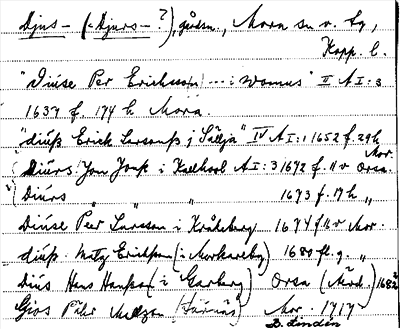 Djus- (= Djurs- ?), gårdsn., Mora sn o. by,
Kopp. l.
"Diuse Per Ericksson ... i Womus" II A I: 3
1637 f. 174 h Mora.
"diuss Erick Larsonss j Sälja" IV A I: 1 1652 f. 29 h
Mor.
Diurs Jon Jonss i Kallhool A I: 3 1672 f. 11 v Orsa.
Diurs " " 1673 f. 17 h "
Diuse Peer Larsson i Kråkeberg 1674 f 11 v Mor.
diuss. Matz Erichsson (i Morkareby) 1680 fl. g. "
Dius Hans Hansson (i Garberg) Orsa (Mård.) 1682
Gios Pähr Matzon (Färnäs) Mor. 1717
D. Lindén